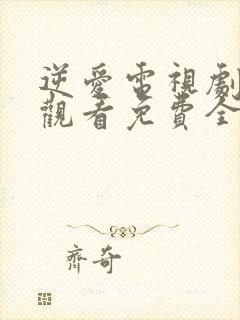 逆愛電視劇
觀看免費全
齊奇